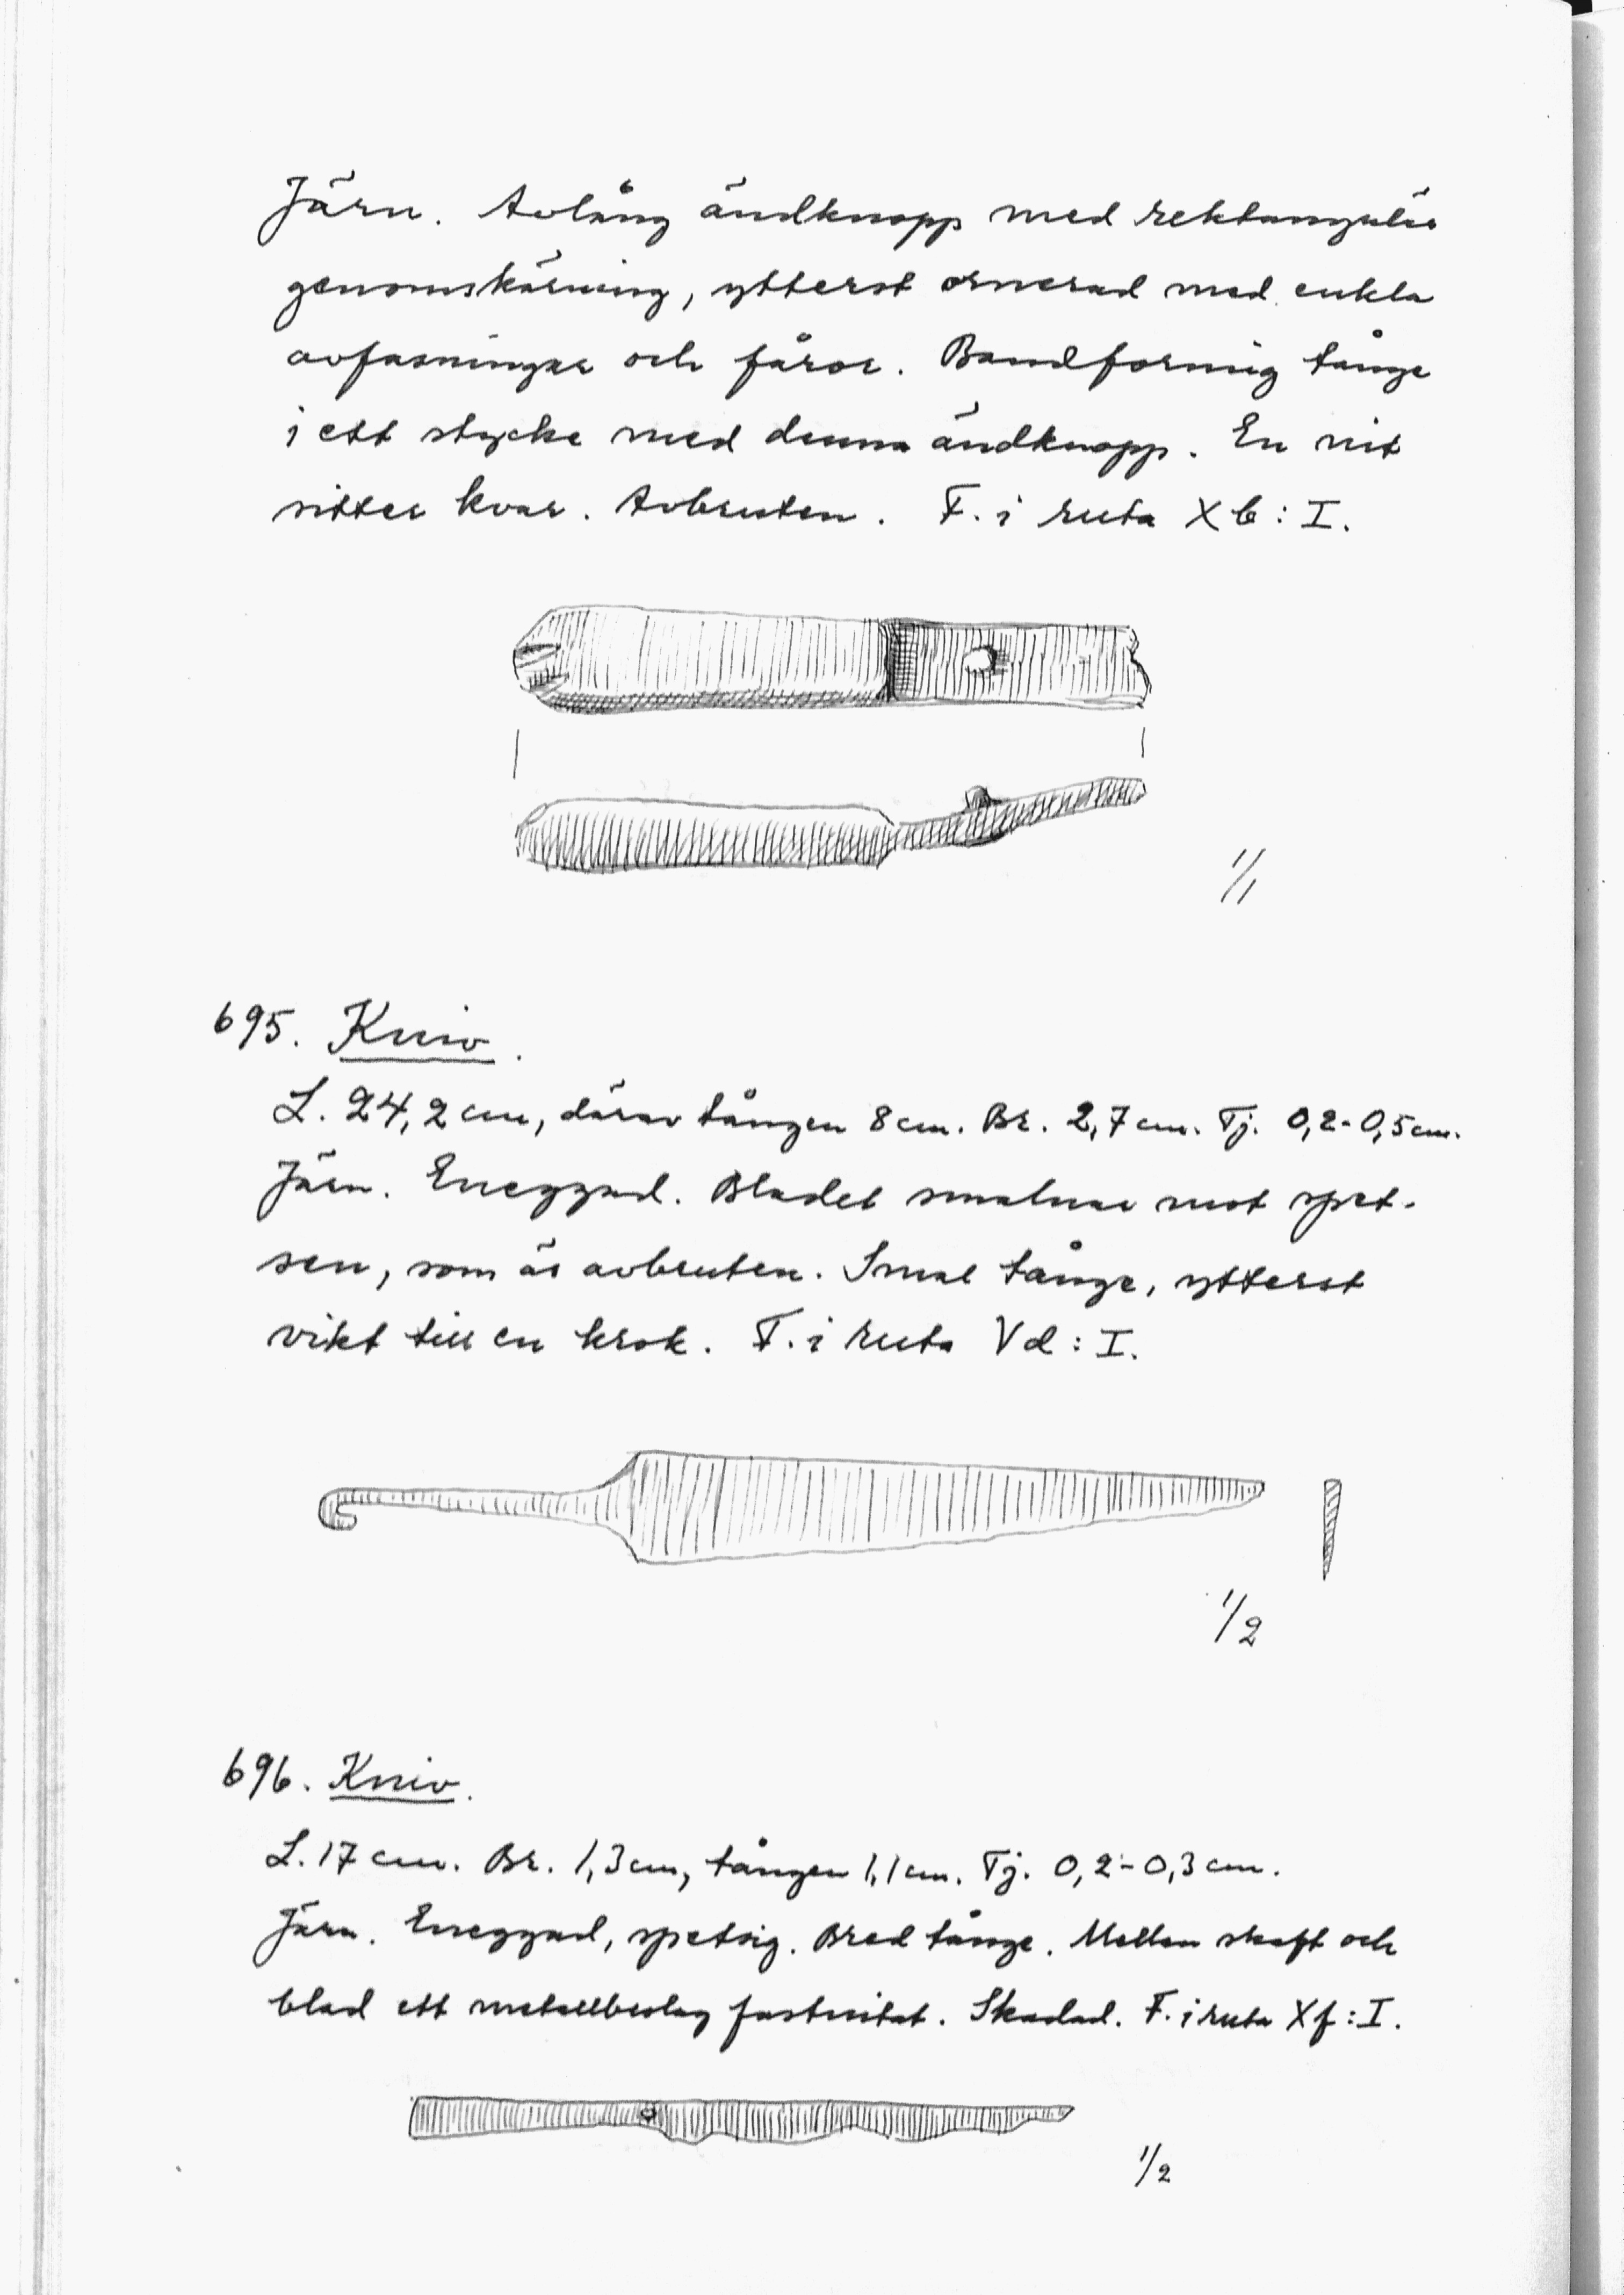 Järn. Avlång ändknopp med rektangulär
genomskärning, ytterst ornerad med enkla
avfasningar och fåror. Bandformig tånge
i ett stycke med denna ändknopp. En nit
sitter kvar. Avbruten. F. i ruta Xb: I.
1/1
695. Kniv.
L. 24,2 cm, därav tången 8 cm. Br. 2,7 cm. Tj. 0,2-0,5 cm.
Järn. Eneggad. Bladet smalnar mot spet-
sen, som är avbruten. Smal tånge, ytterst
vikt till en krok. F. i ruta Vd: I.
1/2
696. Kniv.
L. 17 cm. Br. 1,3 cm, tången 1,1 cm. Tj. 0,2-0,3 cm.
Järn. Eneggad, spetsig. Bred tånge. Mellan skaft och
blad ett metallbeslag fastnitat. Skadad. F. i ruta Xf: I.
1/2